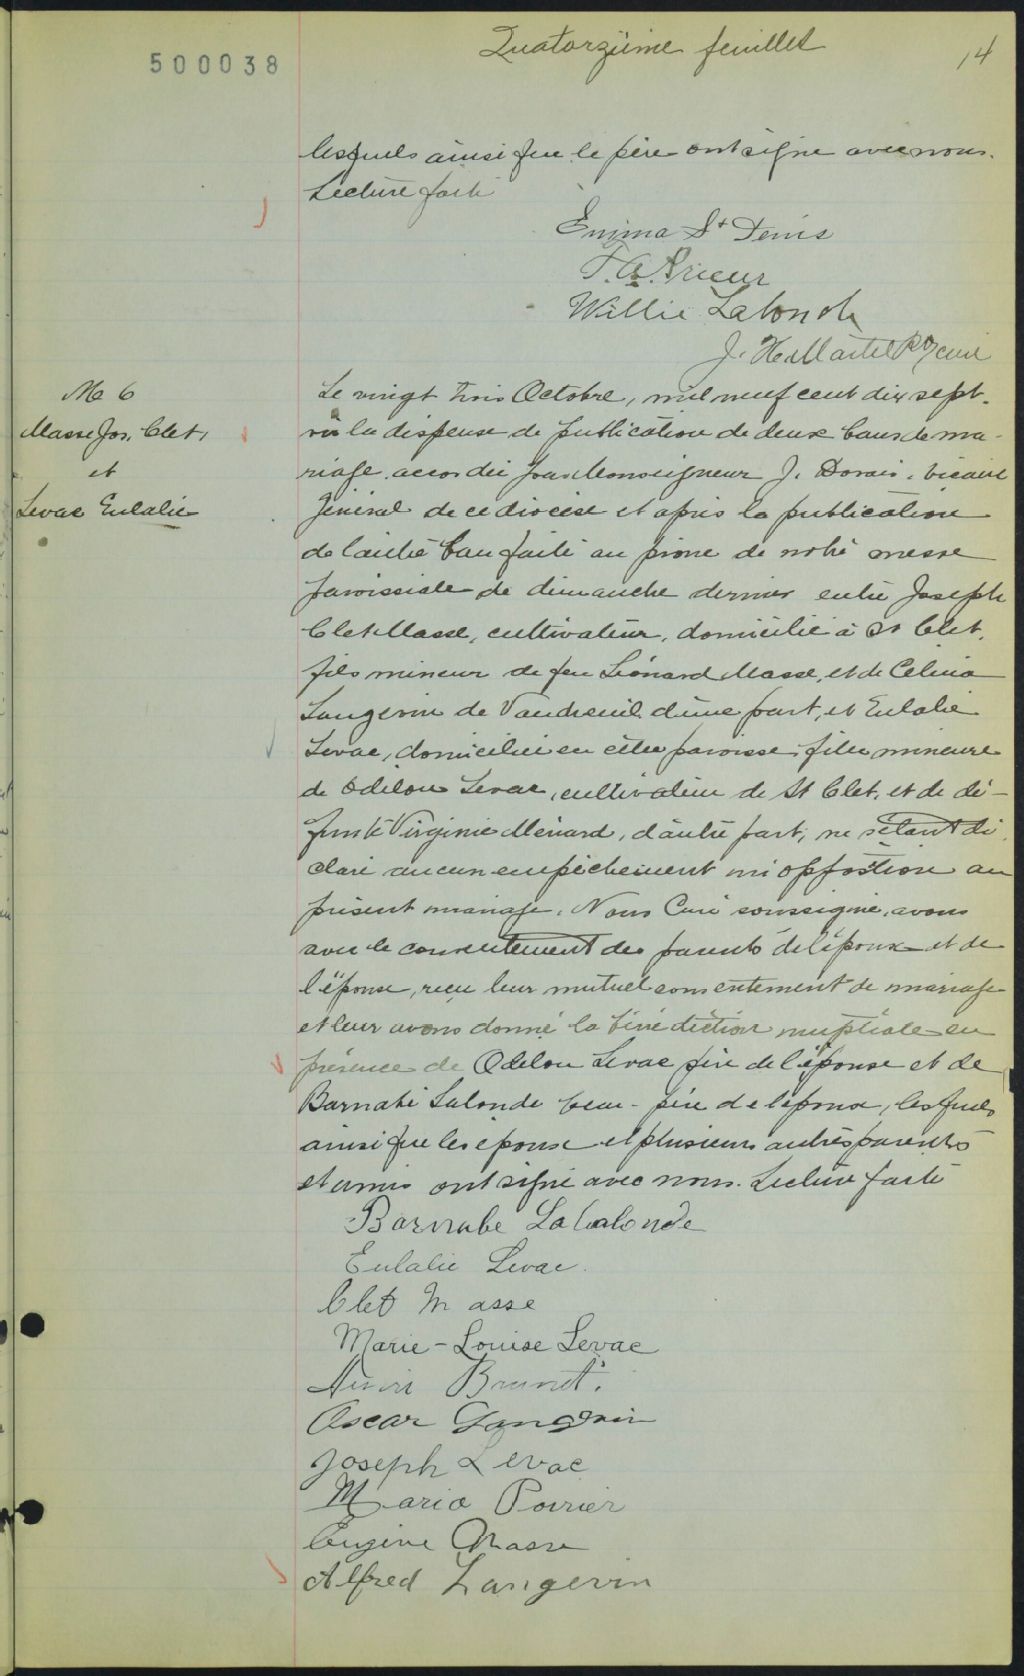 Quatorzième feuillet
14
500038
lesquels ainsi que le père ont signé avec nous.
Lecture faite
Emma St Denis
F. A. Prieur
Willie Lalonde
J. H. Martel Ptre curé
M 6
Masse Jos. Clet,
et
Levac Eulalie
Le vingt trois Octobre, mil neuf cent dix sept.
vu la dispense de publication de deux bans de ma-
riage accordée par Monseigneur J. Dorais, vicaire
Général de ce diocèse et après la publication
de l'autre ban faite au prône de notre messe
paroissiale de dimanche dernier entre Joseph
Clet Masse, cultivateur, domicilié à St Clet,
fils mineur de feu Léonard Masse, et de Célina
Langevin de Vaudreuil d'une part, et Eulalie
Levac, domiciliée en cette paroisse, fille mineure
de Odilon Levac, cultivateur de St Clet, et de dé-
funte Virginie Ménard, d'autre part, ne s'étant dé
claré aucun empêchement ni opposition au
présent mariage, Nous Curé soussigné, avons
avec le consentement des parents de l'époux et de
l'épouse, reçu leur mutuel consentement de mariage
et leur avons donné la bénédiction nuptiale en
présence de Odilon Levac père de l'épouse et de
Barnabé Lalonde beau-père de l'époux, lesquels
ainsi que les époux et plusieurs autres parents
et amis ont signé avec nous. Lecture faite
Barnabe Lalonde
Eulalie Levac.
Clet Masse
Marie-Louise Levac
Henri Brunet.
Oscar Langevin
Joseph Levac
Maria Poirier
Eugène Masse
Alfred Langevin